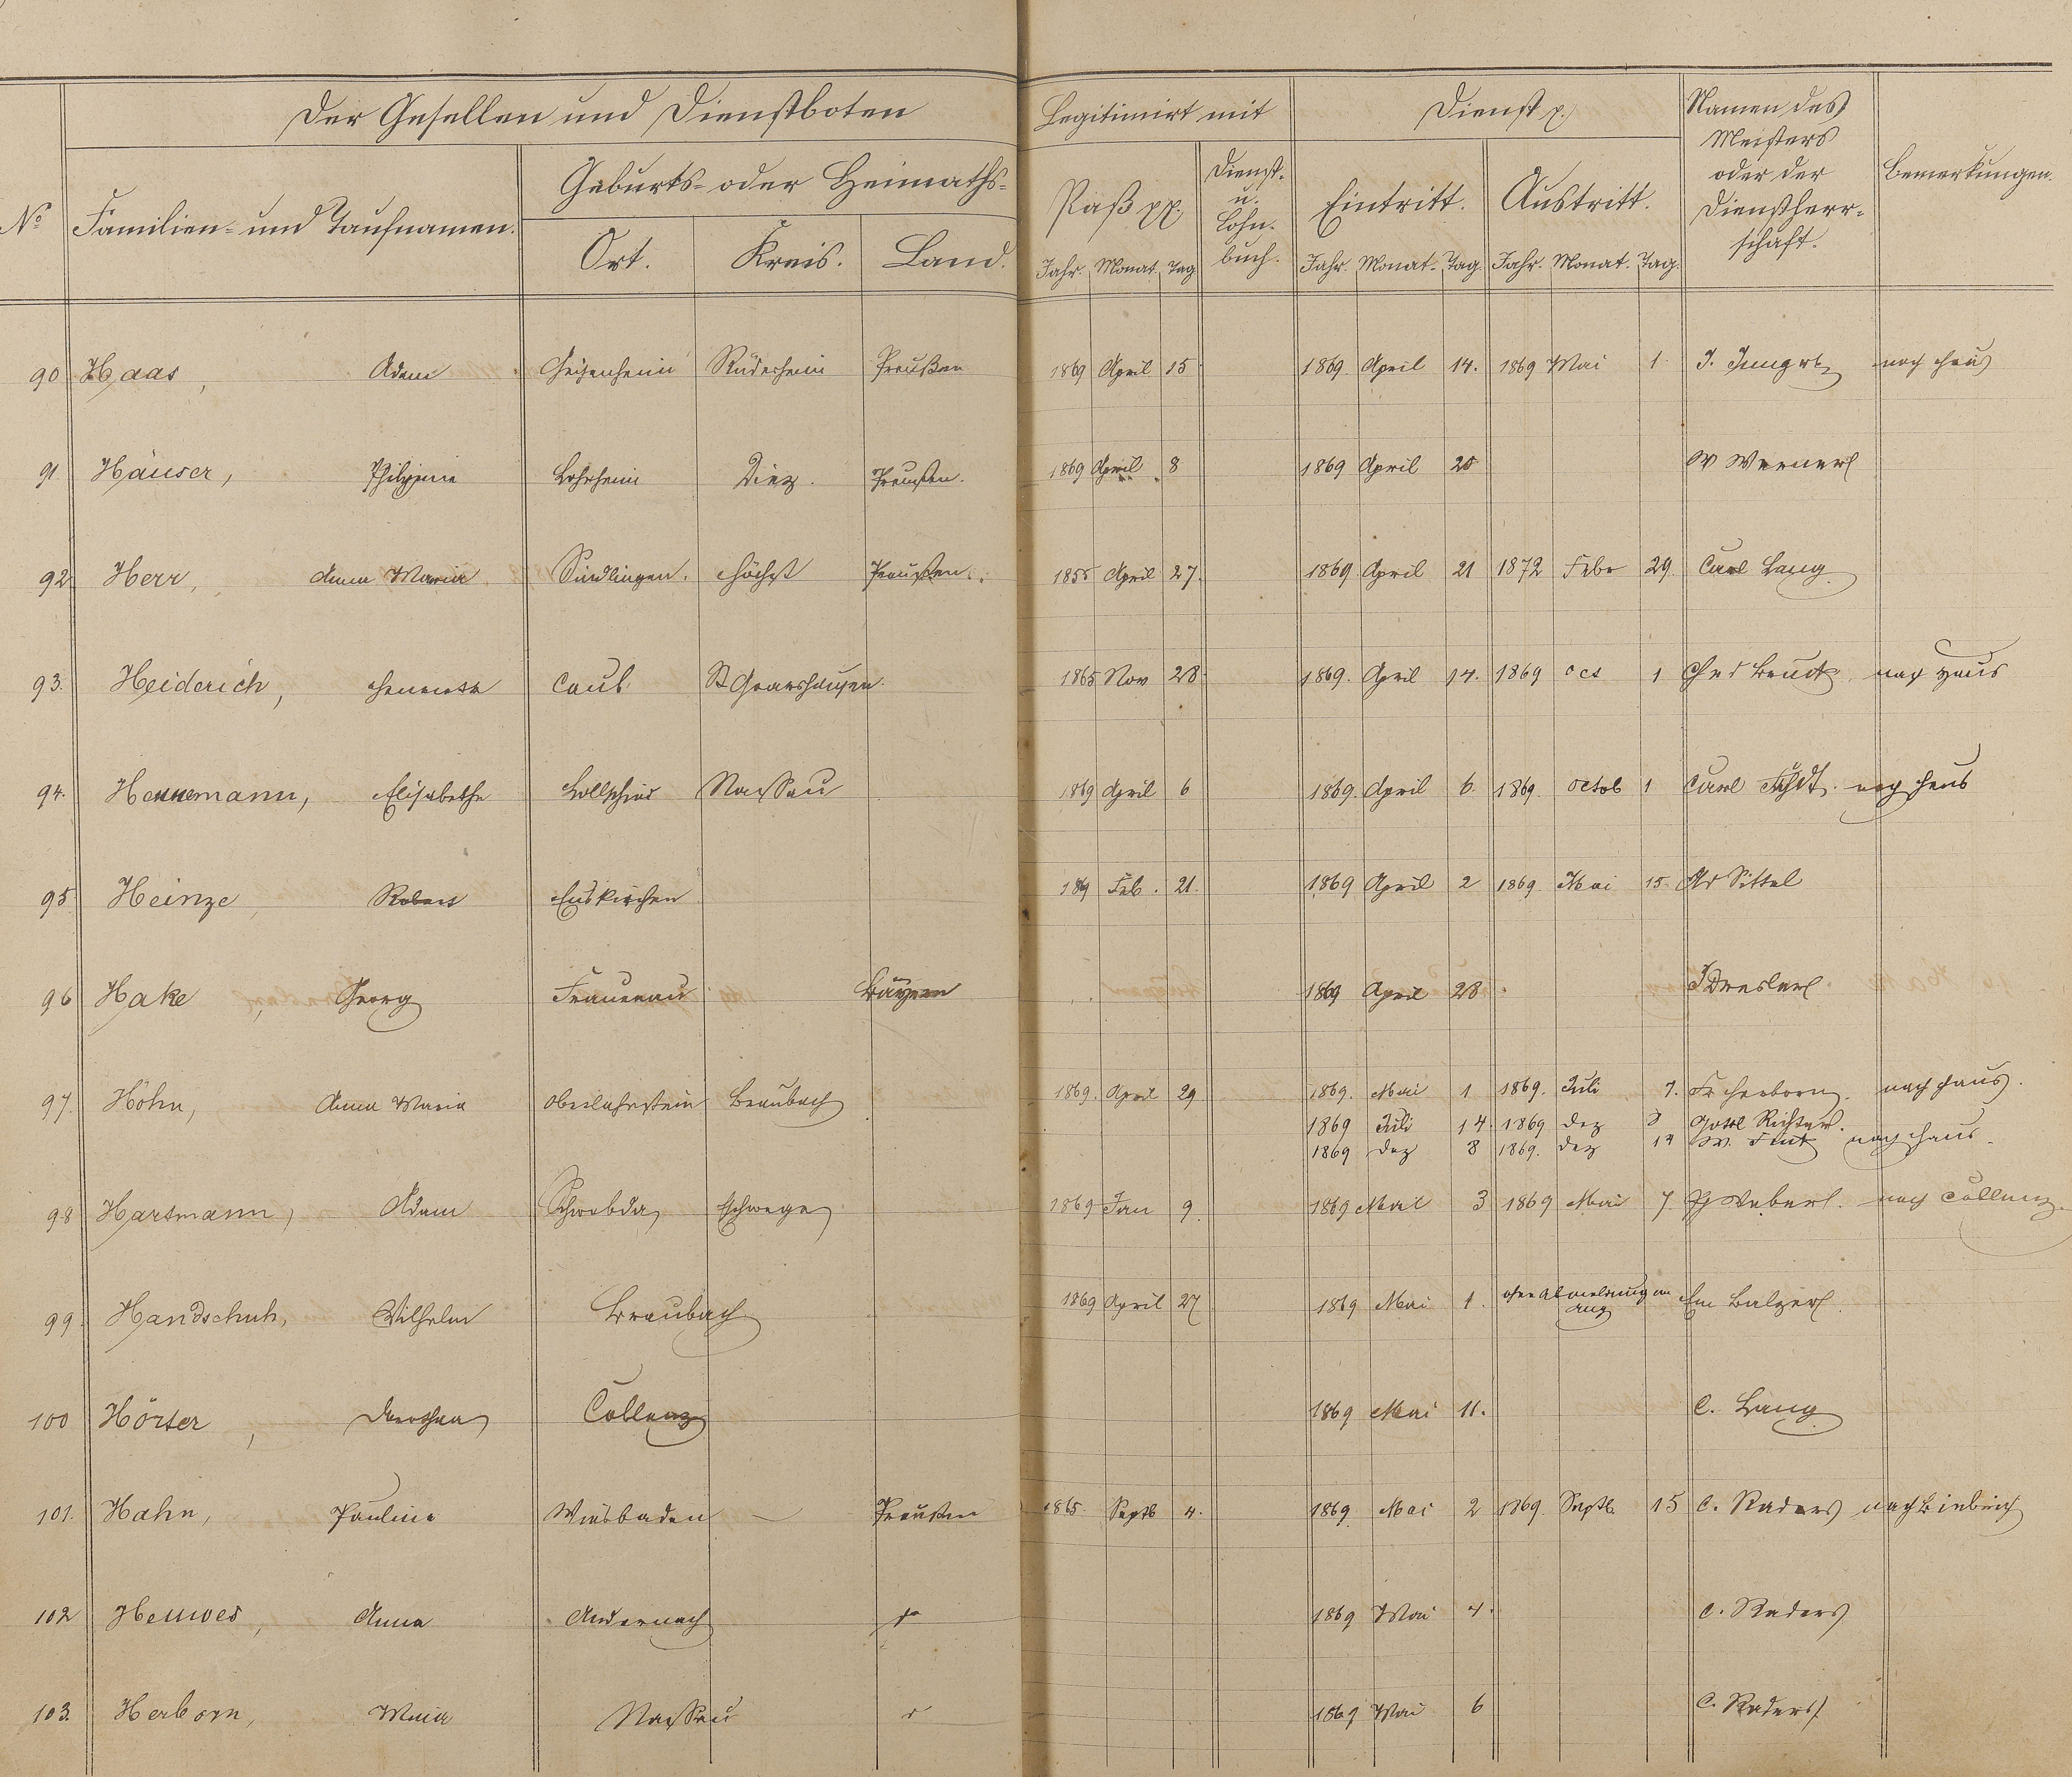 Der Gesellen und Dienstboten Legitimirt mit Dienst p.
No Familien- und Taufnamen. Geburts- oder Heimaths- Paß pp. Dienst- u. Lohn- buch. Eintritt. Austritt. Namen des Meisters oder der Dienstherr- schaft. Bemerkungen.
Ort. Kreis. Land. Jahr. Monat. Tag Jahr. Monat. Tag. Jahr. Monat. Tag.
90 Haas, Adam Geisenheim Rüdesheim Preußen 1869 April 15 1869. April 14. 1869 Mai 1 J. nach Haus
91 Häuser, Philippine Lohrheim Diez. Preußen. 1869 April 8 1869 April 20 W Werner
92 Herr, Anna Maria Sindlingen. Höchst Preußen. 1855 April 27. 1869 April 21 1872 Febr 29. Carl Lang
93. Heiderich, Caub St Goarshausen 1865 Nov 28. 1869. April 14. 1869 oct 1 nach Haus
94. Hennemann, Elisabethe Nassau 1869 April 6 1869. April 6. 1869. octob 1 Carl nach Haus
95 Heinze, Robert Euskirchen 1869 Feb. 21. 1869 April 2 1869. Mai 15. Sittel
96 Hake, Georg Frauenau Bayern 1869 April 28 J Dresler
97. Höhn, Anna Maria Oberlahnstein Braubach 1869. April 29 1869. Mai 1 1869. Juli 7. Fr Herborn. nach Haus.
1869 Juli 14. 1869 Dez 8 Gottl Richter.
1869 Dez 8 1869. Dez 14 W. nach Haus.
98 Hartmann, Adam Schwebda, Eschwege 1869 Jan 9. 1869 Mai 3 1869 Mai 7. Weber. nach Coblenz.
99. Handschuh, Wilhelm Braubach 1869 April 27 1869 Mai 1. ohne Abmeldung Em Balzer.
100 Hörter, Dorothea Coblenz 1869 Mai 11. C. Lang
101. Hahn, Pauline Wiesbaden — Preußen 1865. Septb 4. 1869. Mai 2 1869. Septb. 15 C. Raders nach Biebrich
102 Hennes, Anna Andernach 1869 Mai 4. C. Raders
103. Herborn, Maria Nassau 1869 Mai 6 C. Raders